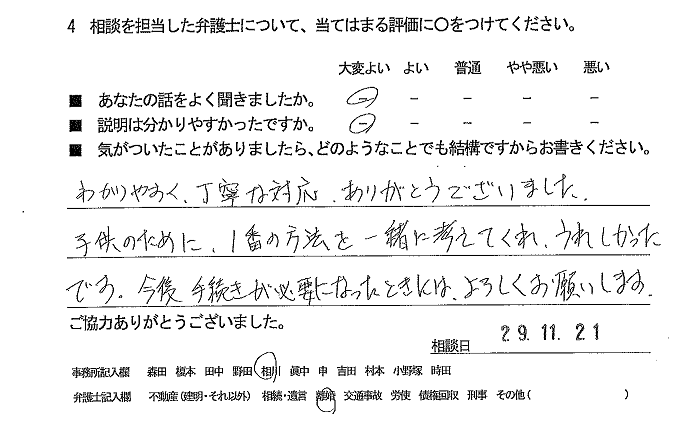 4 相談を担当した弁護士について、当てはまる評価に○をつけてください。
大変よい よい 普通 やや悪い 悪い
■ あなたの話をよく聞きましたか。 － － － － －
■ 説明は分かりやすかったですか。 － － － － －
■ 気がついたことがありましたら、どのようなことでも結構ですからお書きください。
わかりやすく、丁寧な対応、ありがとうございました。
子供のために、1番の方法を一緒に考えてくれ、うれしかった
です。今後手続きが必要になったときには、よろしくお願いします。
ご協力ありがとうございました。
相談日 29.11.21
事務所記入欄 森田 榎本 田中 野田 相川 眞中 申 吉田 村本 小野塚 時田
弁護士記入欄 不動産（建明・それ以外） 相続・遺言 離婚 交通事故 労使 債権回収 刑事 その他（ ）